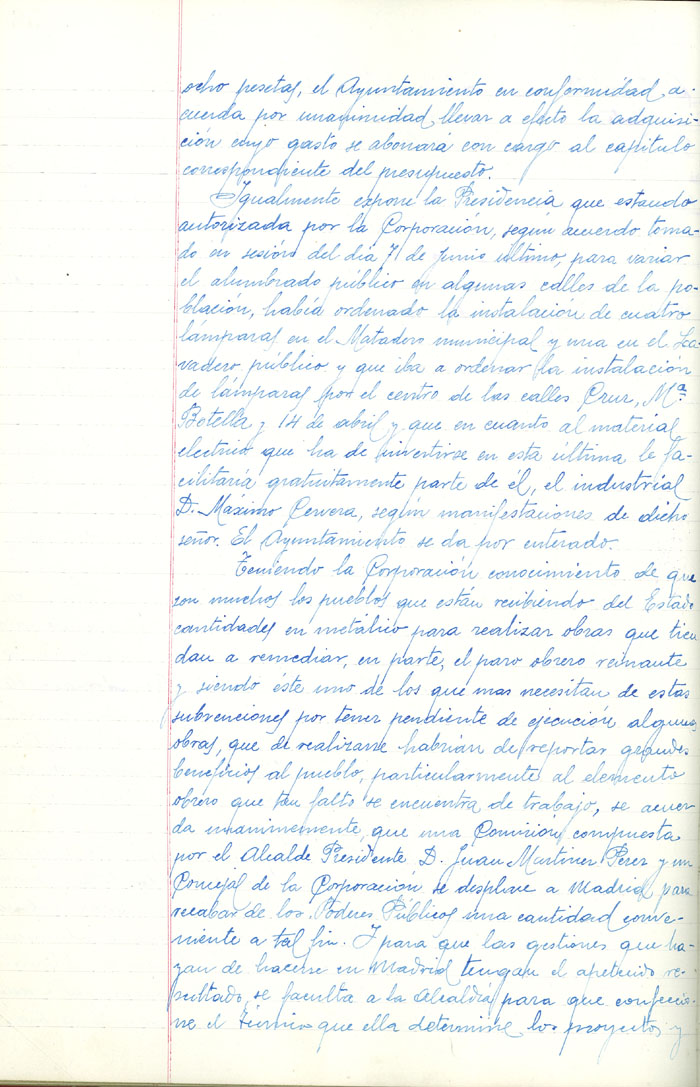 ocho pesetas, el Ayuntamiento en conformidad a-
cuerda por unanimidad llevar a efecto la adquisi-
ción cuyo gasto se abonará con cargo al capitulo
correspondiente del presupuesto.
Igualmente expone la Presidencia que estando
autorizada por la Corporación, según acuerdo toma-
do en sesión del dia 7 de Junio último, para variar
el alumbrado público en algunas calles de la po-
blación, había ordenado la instalación de cuatro
lámparas en el Matadero municipal y una en el La-
vadero público y que iba a ordenar la instalación
de lámparas por el centro de las calles Cruz, Mª
Botella y 14 de abril y que en cuanto al material
electrico que ha de invertirse en esta última le fa-
cilitaría gratuitamente parte de él, el industrial
D. Máximo Cervera, según manifestaciones de dicho
señor. El Ayuntamiento se da por enterado.
Teniendo la Corporación conocimiento de que
son muchos los pueblos que están recibiendo del Estado
cantidades en metálico para realizar obras que tien
dan a remediar, en parte, el paro obrero reinante
y siendo éste uno de los que mas necesitan de estas
subvenciones por tener pendiente de ejecución algunas
obras, que de realizarse habrían de reportar grandes
beneficios al pueblo, particularmente al elemento
obrero que tan falto se encuentra de trabajo, se acuer
da unanimemente, que una Comisión compuesta
por el Alcalde Presidente D. Juan Martinez Perez y un
Concejal de la Corporación se desplace a Madrid para
recabar de los Poderes Públicos una cantidad conve-
niente a tal fin. Y para que las gestiones que ha-
yan de hacerse en Madrid tengan el apetecido re-
sultado, se faculta a la Alcaldía para que confeccio-
ne el técnico que ella determine los proyectos y